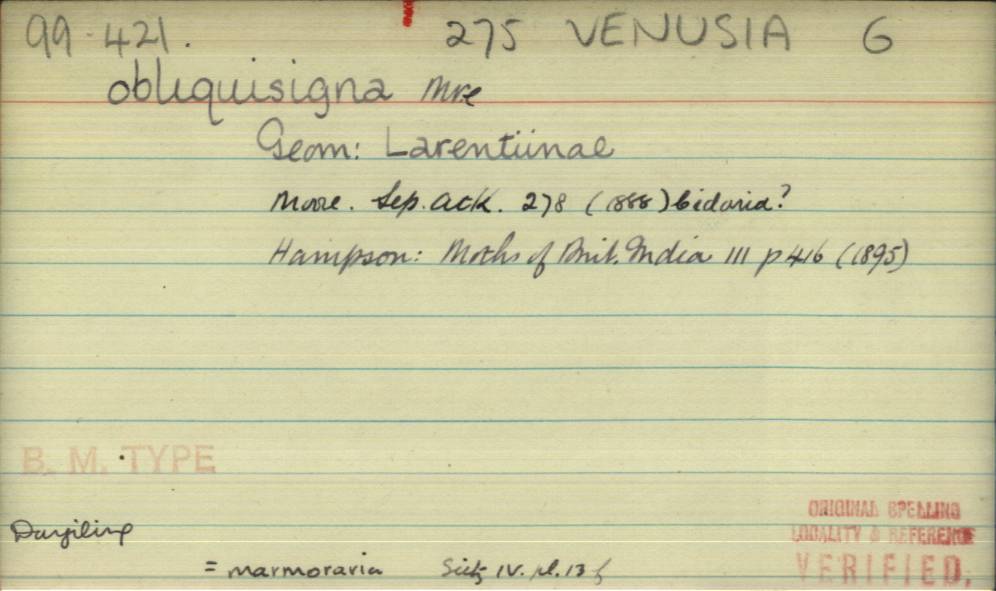 99-421. 275 VENUSIA G
obliquisigna Mre
Geom: Larentiinae
Moore. Lep. Atk. 278 (1888) bidaria?
Hampson: Moths of Brit. India III p 416 (1895)
B. M. TYPE
Darjiling
= marmoraria Seitz IV. pl. 13 f
ORIGINAL SPELLING
LOCALITY & REFERENCE
VERIFIED.